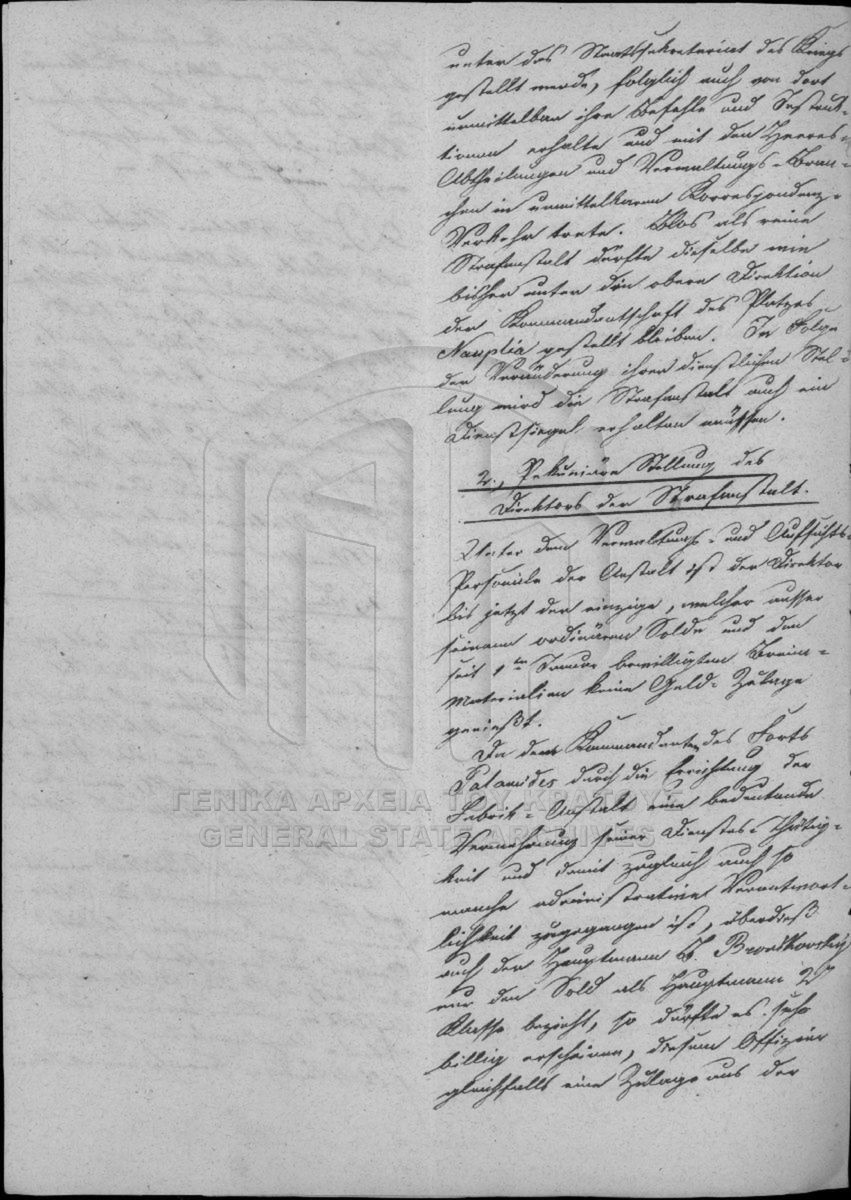 unter das Staatssekretariat des Kriegs
gestellt werde, folglich auch von dort
unmittelbar ihre Befehle und Instruk-
tionen erhalte und mit den Heeres-
Abtheilungen und Verwaltungs-Bran-
chen in unmittelbaren Korrespondenz-
Verkehr trete. Blos als reine
Strafanstalt dürfte dieselbe wie
bisher unter der obern Direktion
der Kommandantschaft des Platzes
Nauplia gestellt bleiben. In Folge
der Veränderung ihrer dienstlichen Stel-
lung wird die Strafanstalt auch ein
Dienstsiegel erhalten müssen.
2., Pekuniäre Stellung des
Direktors der Strafanstalt.
Unter dem Verwaltungs- und Aufsichts-
Personale der Anstalt ist der Direktor
bis jetzt der einzige, welcher ausser
seinem ordinären Solde und den
seit 1ten Januar bewilligten Brenn-
Materialien keine Geld-Zulage
genießt.
Da dem Kommandanten des Forts
Palamides durch die Errichtung der
Fabrik-Anstalt eine bedeutende
Vermehrung seiner Dienstes-Thätig-
keit und damit zugleich auch so
manche administrative Verantwort-
lichkeit zugegangen ist, überdieß
auch der Hauptmann
nur den Sold als Hauptmann 2r
Klasse bezieht, so dürfte es sehr
billig erscheinen, diesem Offizier
gleichfalls eine Zulage aus der
ΓΕΝΙΚΑ ΑΡΧΕΙΑ ΤΟΥ ΚΡΑΤΟΥΣ
GENERAL STATE ARCHIVES